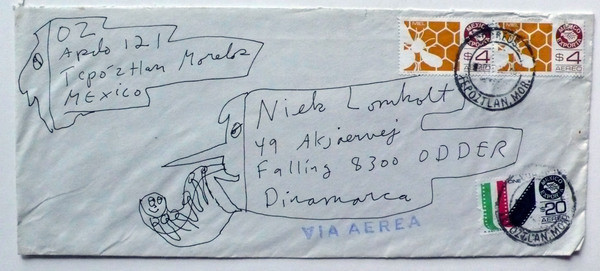 OZ
Apdo 121
Tepóztlan Morelos
MEXICO
MIEL
MEXICO
EXPORTA
$4
AEREO
MEXICO
EXPORTA
$4
AEREO
TEPOZTLAN, MOR.
Niels Lomholt
49 Aksjaervej
Falling 8300 ODDER
Dinamarca
VIA AEREA
MEXICO
EXPORTA
$20
AEREO